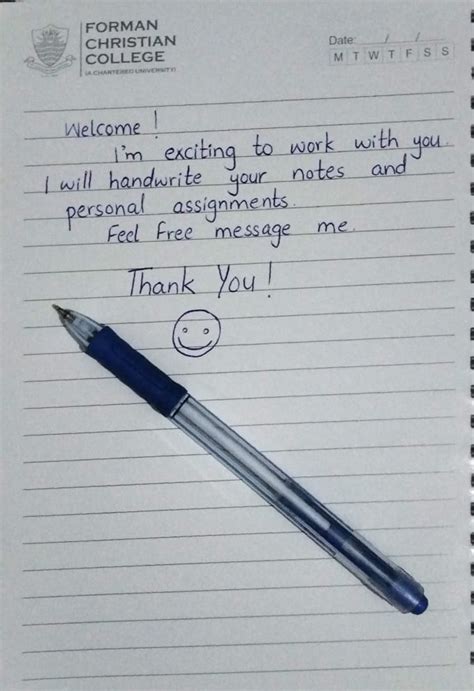 FORMAN
CHRISTIAN
COLLEGE
(A CHARTERED UNIVERSITY)
Date: / /
M T W T F S S
Welcome!
I'm exciting to work with you.
I will handwrite your notes and
personal assignments.
Feel Free message me.
Thank You!